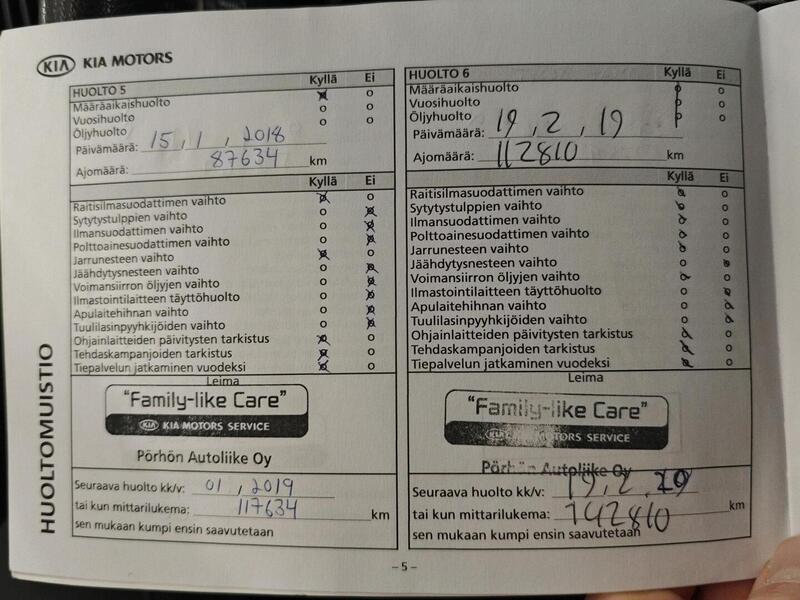 KIA KIA MOTORS
HUOLTO 5 Kyllä Ei
Määräaikaishuolto x o
Vuosihuolto o o
Öljyhuolto o o
Päivämäärä: 15, 1, 2018
Ajomäärä: 87634 km
Kyllä Ei
Raitisilmasuodattimen vaihto x o
Sytytystulppien vaihto o x
Ilmansuodattimen vaihto o x
Polttoainesuodattimen vaihto o x
Jarrunesteen vaihto x o
Jäähdytysnesteen vaihto o x
Voimansiirron öljyjen vaihto o x
Ilmastointilaitteen täyttöhuolto o x
Apulaitehihnan vaihto o x
Tuulilasinpyyhkijöiden vaihto o x
Ohjainlaitteiden päivitysten tarkistus x o
Tehdaskampanjoiden tarkistus x o
Tiepalvelun jatkaminen vuodeksi x o
Leima
"Family-like Care"
KIA KIA MOTORS SERVICE
Pörhön Autoliike Oy
Seuraava huolto kk/v: 01, 2019
tai kun mittarilukema: 117634 km
sen mukaan kumpi ensin saavutetaan
HUOLTO 6 Kyllä Ei
Määräaikaishuolto o o
Vuosihuolto o o
Öljyhuolto o o
Päivämäärä: 19, 2, 19
Ajomäärä: 112810 km
Kyllä Ei
Raitisilmasuodattimen vaihto o o
Sytytystulppien vaihto o o
Ilmansuodattimen vaihto o o
Polttoainesuodattimen vaihto o o
Jarrunesteen vaihto o o
Jäähdytysnesteen vaihto o o
Voimansiirron öljyjen vaihto o o
Ilmastointilaitteen täyttöhuolto o o
Apulaitehihnan vaihto o o
Tuulilasinpyyhkijöiden vaihto o o
Ohjainlaitteiden päivitysten tarkistus o o
Tehdaskampanjoiden tarkistus o o
Tiepalvelun jatkaminen vuodeksi o o
Leima
"Family-like Care"
KIA MOTORS SERVICE
Pörhön Autoliike Oy
Seuraava huolto kk/v: 19, 2, 20
tai kun mittarilukema: 142810 km
sen mukaan kumpi ensin saavutetaan
HUOLTOMUISTIO
– 5 –